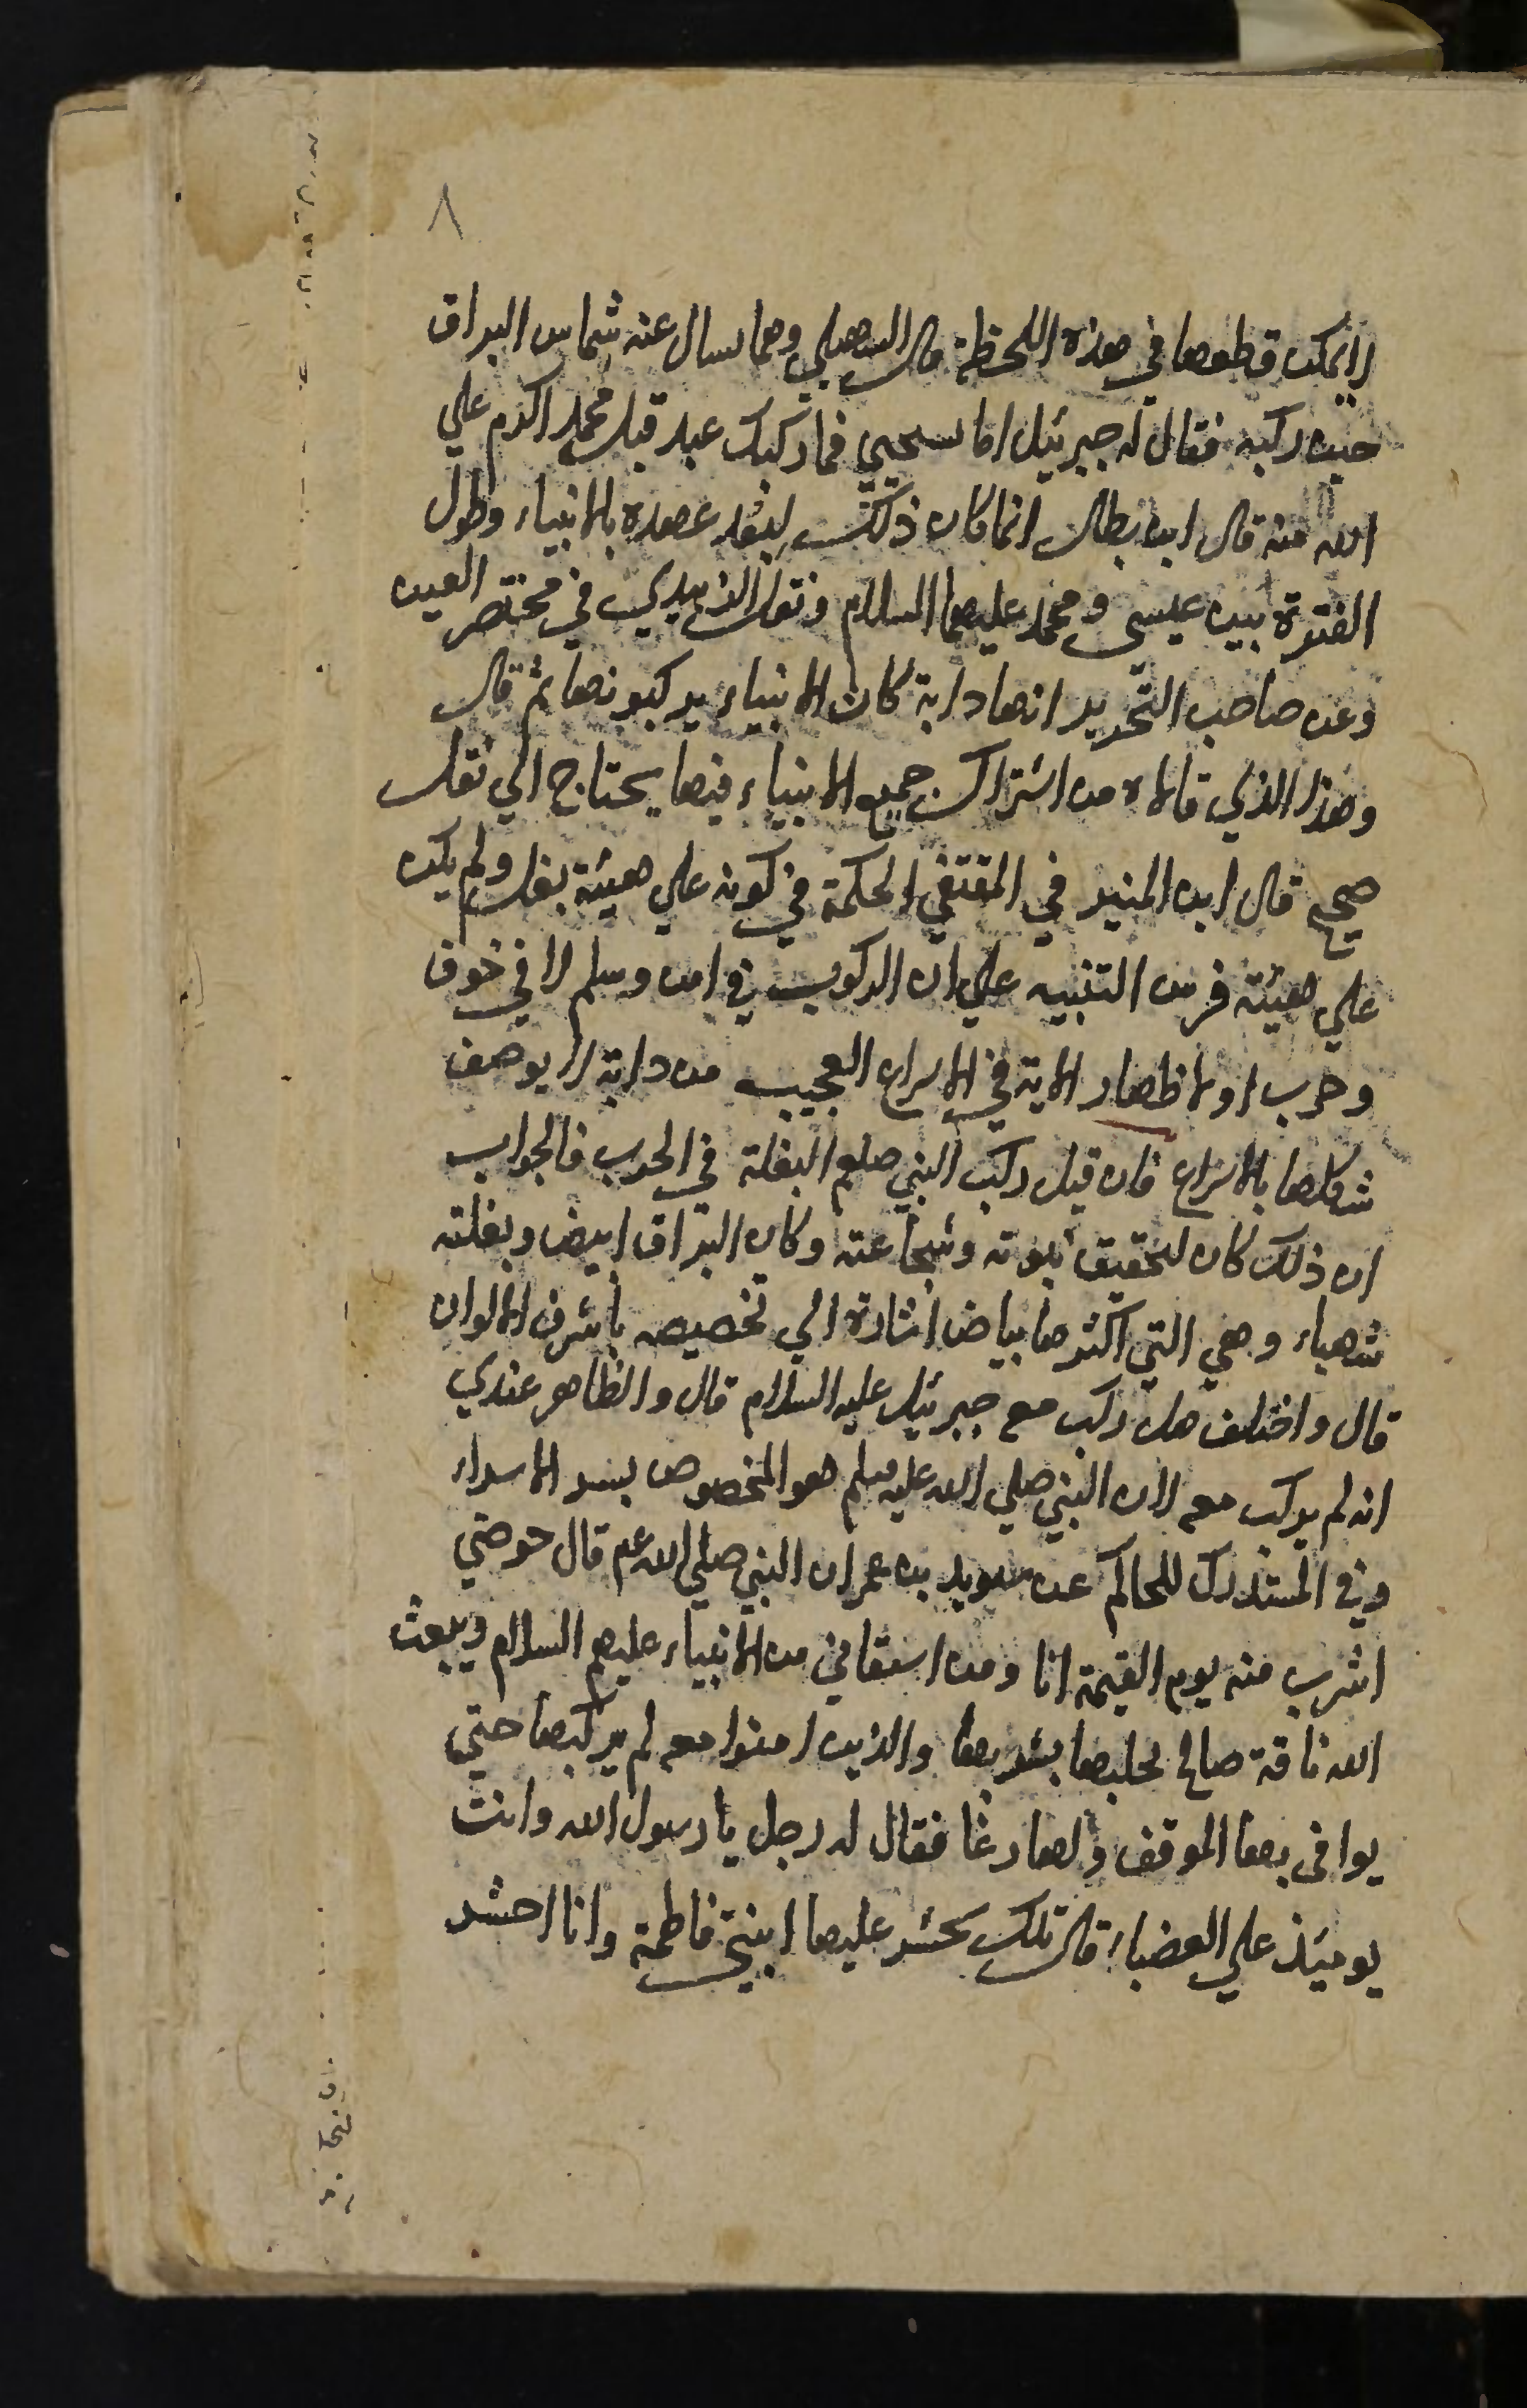 ٨
لا يمكن قطعها في هذه اللحظة قال السهيلي ومما يسال عنه شماس البراق
حين ركبه فقال له جبرئيل اما تستحيي فما ركبك عبد قبل محمد اكرم علي
الله منه قال ابن بطال انما كان ذلك لبعد عهده بالانبياء وطول
الفترة بين عيسى ومحمد عليهما السلام ونقل الزبيدي في مختصر العين
وعن صاحب التحرير انها دابة كان الانبياء يركبونها ثم قال
وهذا الذي قالاه من اشتراك جميع الانبياء فيها يحتاج الي نقل
صحيح قال ابن المنير في المقتفي الحكمة في كونه علي هيئة بغل ولم يكن
علي هيئة فرس التنبيه علي ان الركوب في امن وسلم لا في خوف
وحرب او لاظهار الاية في الاسراع العجيب من دابة لا يوصف
شكلها بالاسراع فان قيل ركب النبي صلعم البغلة في الحرب فالجواب
ان ذلك كان لتحقيق نبوته وشجاعته وكان البراق ابيض وبغلته
شهباء وهي التي اكثرها بياض اشارة الي تخصيصه باشرف الالوان
قال واختلف هل ركب معه جبرئيل عليه السلام قال والظاهر عندي
انه لم يركب معه لان النبي صلي الله عليه وسلم هو المخصوص بسر الاسراء
وفي المستدرك للحاكم عن سويد بن عمر ان النبي صلي الله عم قال حوضي
اشرب منه يوم القيمة انا ومن استقاني من الانبياء عليهم السلام ويبعث
الله ناقة صالح يحلبها يشربها والذين امنوا معه لم يركبها حتي
يوافى بها الموقف ولها رغا فقال له رجل يا رسول الله وانت
يومئذ علي العضباء قال تلك تحشر عليها ابنتي فاطمة وانا احشر